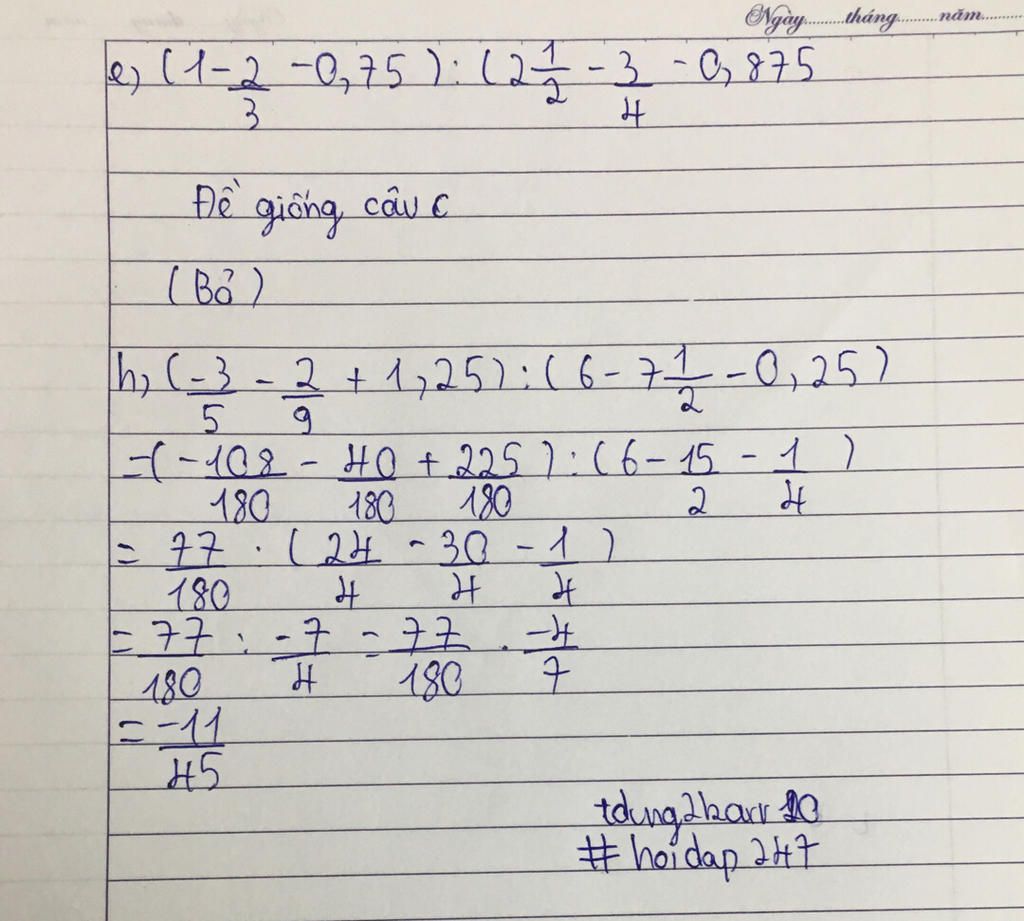 Ngày.........tháng.........năm.........
e, (1 - 2/3 - 0,75) : (2 1/2 - 3/4 - 0,875
Đề giống câu c
(Bỏ)
h, (-3/5 - 2/9 + 1,25) : (6 - 7 1/2 - 0,25)
= (-108/180 - 40/180 + 225/180) : (6 - 15/2 - 1/4)
= 77/180 . (24/4 - 30/4 - 1/4)
= 77/180 : -7/4 = 77/180 . -4/7
= -11/45
# hoidap 247